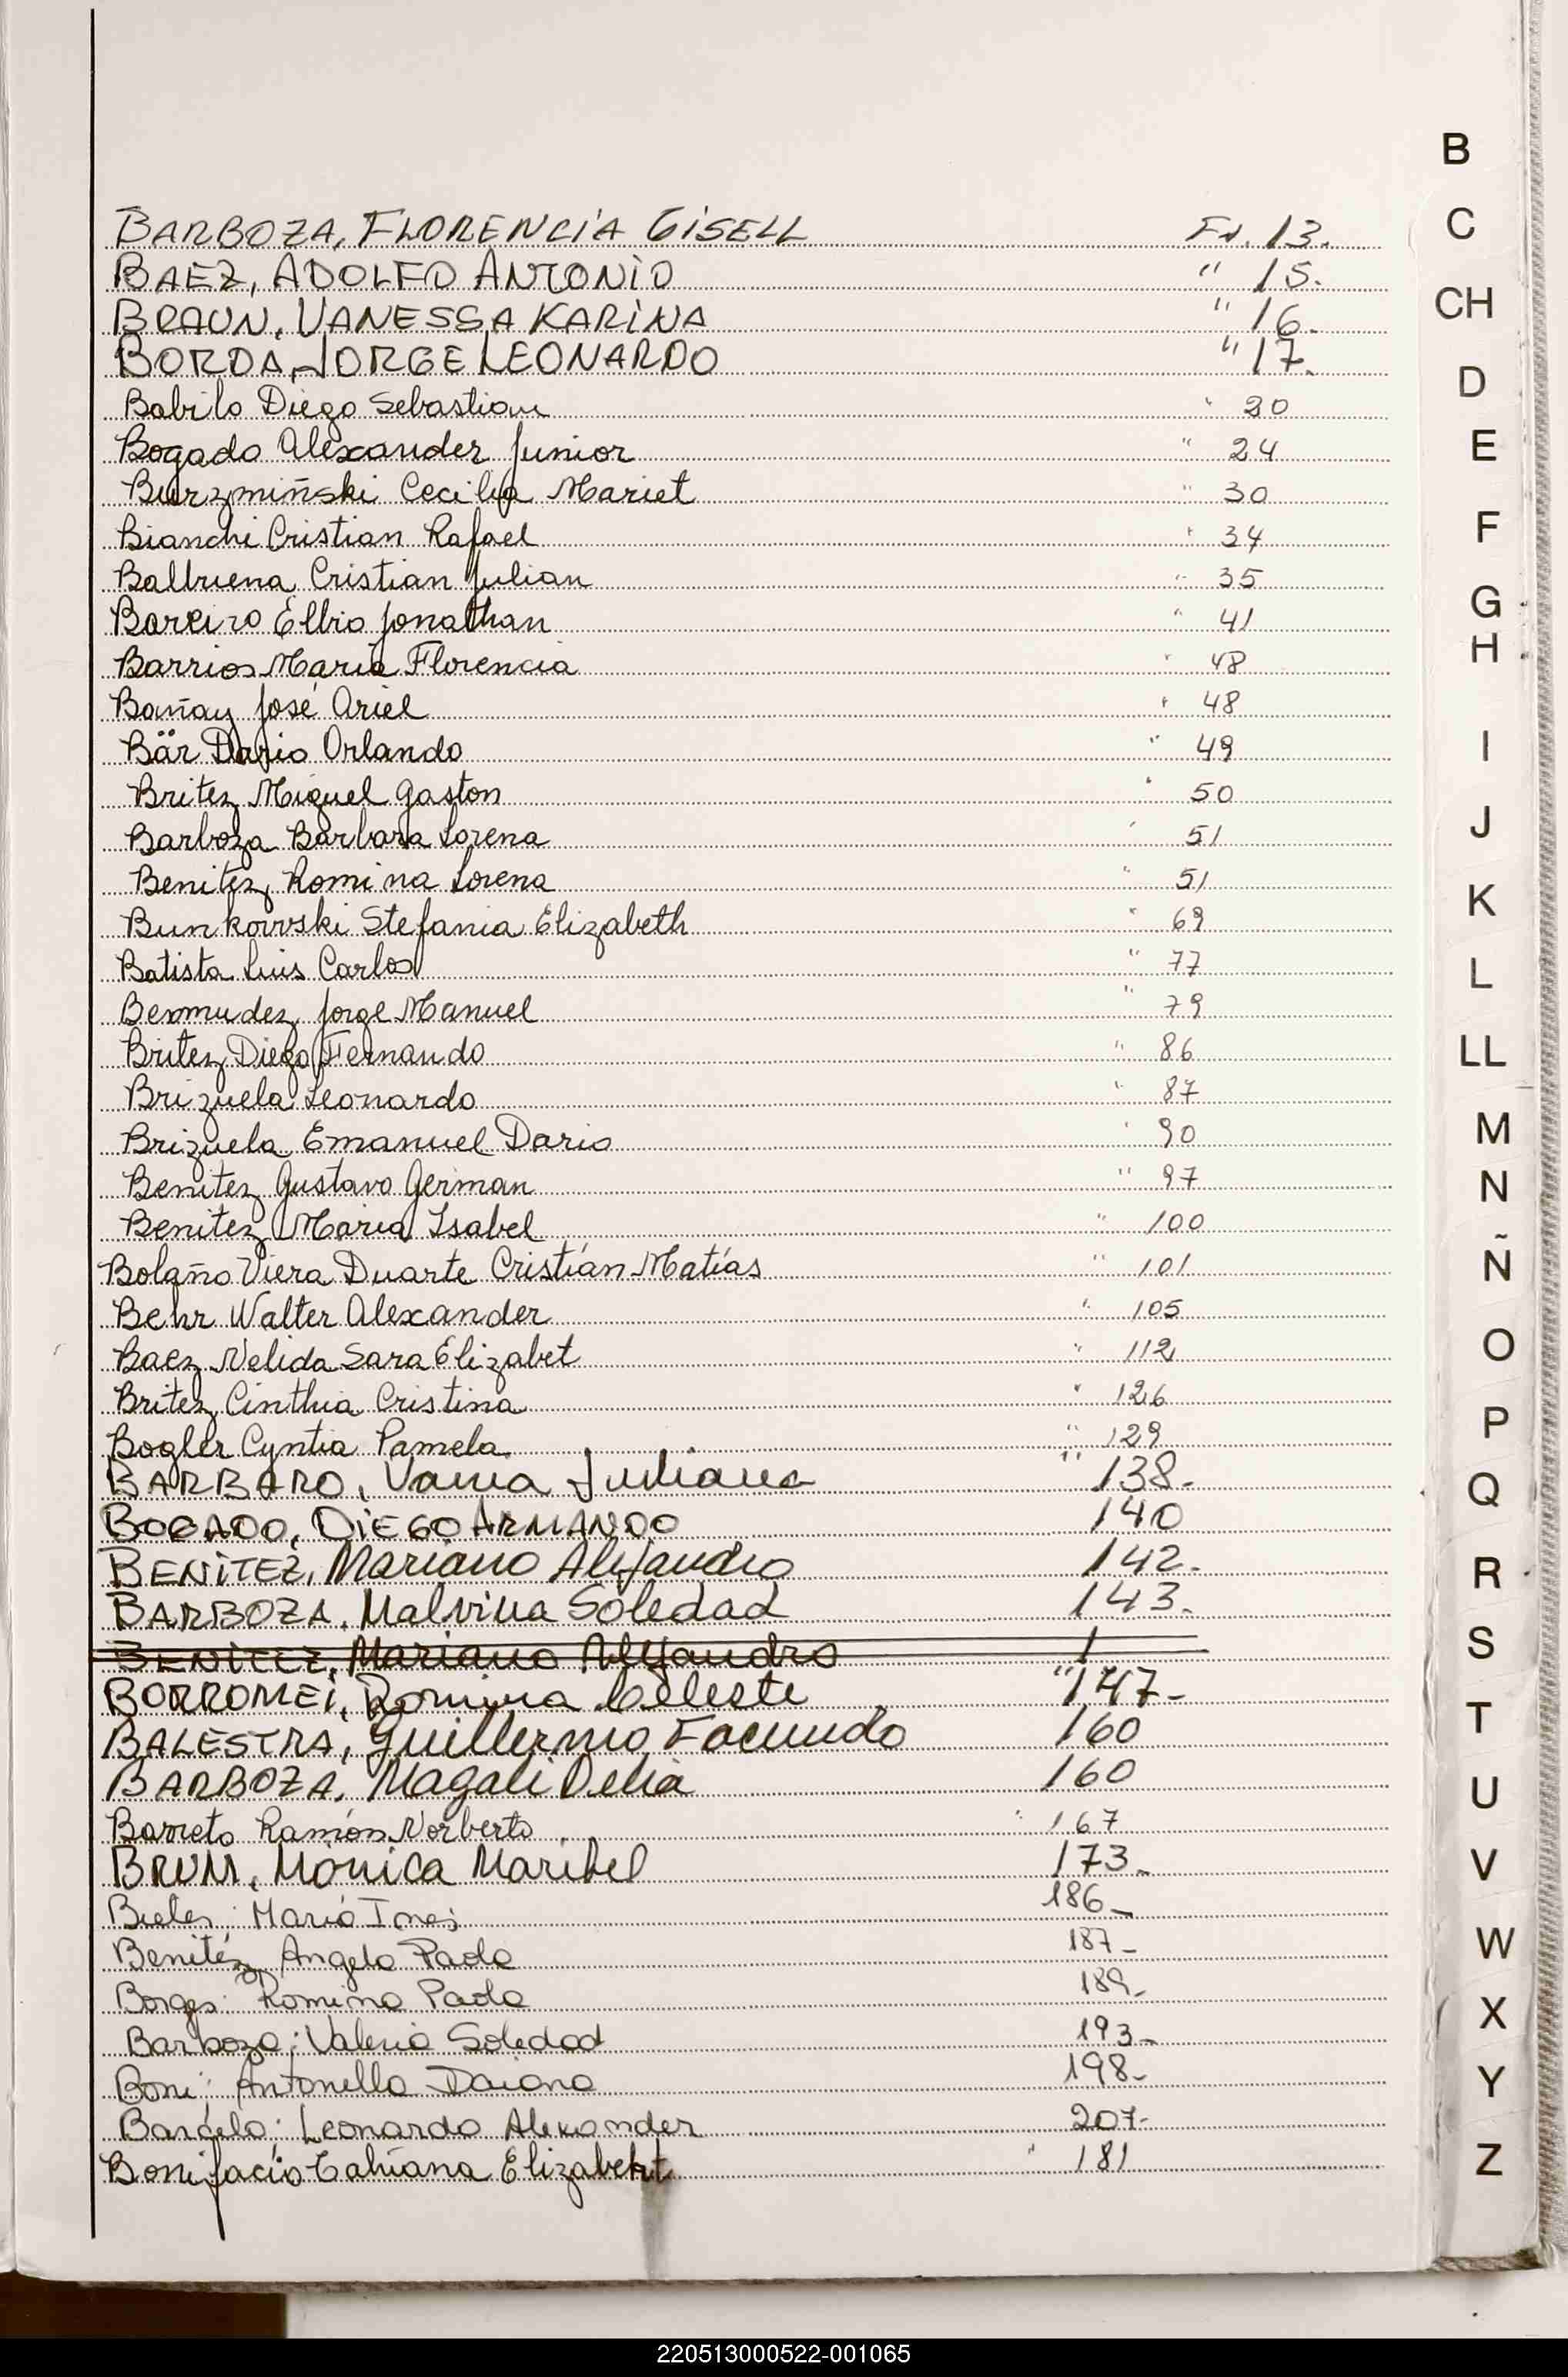 BARBOZA, FLORENCIA GISELL Fº. 13.
BAEZ, ADOLFO ANTONIO " 15.
BRAUN, VANESSA KARINA " 16.
BORDA, JORGE LEONARDO " 17.
Babilo Diego Sebastian " 20
Bogado Alexander Junior " 24
Burzmiñski Cecilia Mariet " 30
Bianchi Cristian Rafael " 34
Balbuena Cristian Julian " 35
Bareiro Elbio Jonathan " 41
Barrios Maria Florencia " 48
Bañay José Ariel " 48
Bär Dario Orlando " 49
Britez Miguel Gaston " 50
Barboza Barbara Lorena " 51
Benitez Romina Lorena " 51
Bunkowski Stefania Elizabeth " 69
Batista Luis Carlos " 77
Bermudez Jorge Manuel " 79
Britez Diego Fernando " 86
Brizuela Leonardo " 87
Brizuela Emanuel Dario " 90
Benitez Gustavo German " 97
Benitez Maria Isabel " 100
Bolaño Viera Duarte Cristián Matías " 101
Behr Walter Alexander " 105
Baez Nelida Sara Elizabet " 112
Britez Cinthia Cristina " 126
Bogler Cyntia Pamela " 129
BARBARO, Vania Juliana " 138.
BOGADO, DIEGO ARMANDO 140
BENITEZ, Mariano Alejandro 142.
BARBOZA, Malvina Soledad 143.
BENITEZ, Mariano Alejandro 1
BORROMEI, Romina Celeste " 147-
BALESTRA, Guillermo Facundo 160
BARBOZA, Magali Delia 160
Barreto Ramón Norberto " 167
BRUM, Mónica Maribel 173-
Maria Ines 186-
Benitéz Angela Paola 187-
Borges: Romina Paola 189-
Barboza: Valeria Soledad 193-
Boni: Antonella Daiana 198-
Barcelo: Leonardo Alexander 207-
Bonifacio Tatiana Elizabeht " 181
B
C
CH
D
E
F
G
H
I
J
K
L
LL
M
N
Ñ
O
P
Q
R
S
T
U
V
W
X
Y
Z
220513000522-001065